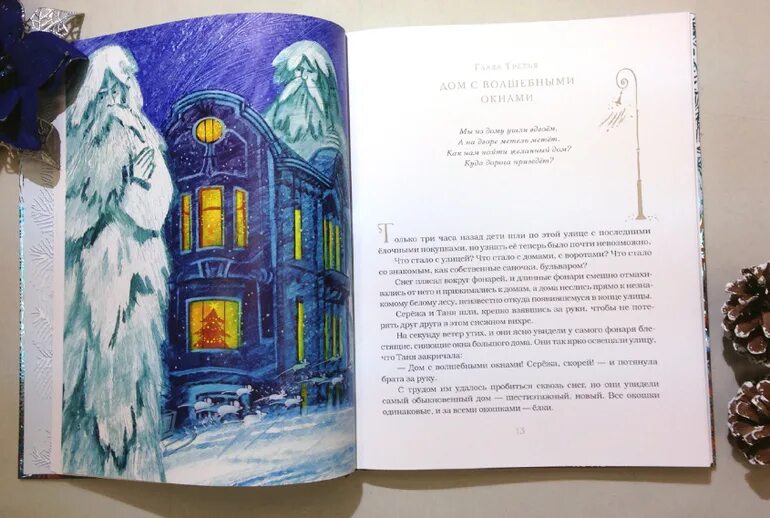 Глава Третья
ДОМ С ВОЛШЕБНЫМИ
ОКНАМИ
Мы из дому ушли вдвоём,
А на дворе метель метёт.
Как нам найти желанный дом?
Куда дорога приведёт?
Только три часа назад дети шли по этой улице с последними
ёлочными покупками, но узнать её теперь было почти невозможно.
Что стало с улицей? Что стало с домами, с воротами? Что стало
со знакомым, как собственные саночки, бульваром?
Снег плясал вокруг фонарей, и длинные фонари смешно отмахи-
вались от него и прижимались к домам, а дома неслись прямо к незна-
комому белому лесу, неизвестно откуда появившемуся в конце улицы.
Серёжа и Таня шли, крепко взявшись за руки, чтобы не поте-
рять друг друга в этом снежном вихре.
На секунду ветер утих, и они ясно увидели у самого фонаря бле-
стящие, сияющие окна большого дома. Они так ярко освещали улицу,
что Таня закричала:
— Дом с волшебными окнами! Серёжа, скорей! — и потянула
брата за руку.
С трудом им удалось пробиться сквозь снег, но они увидели
самый обыкновенный дом — шестиэтажный, новый. Все окошки
одинаковые, и за всеми окошками — ёлки.
13